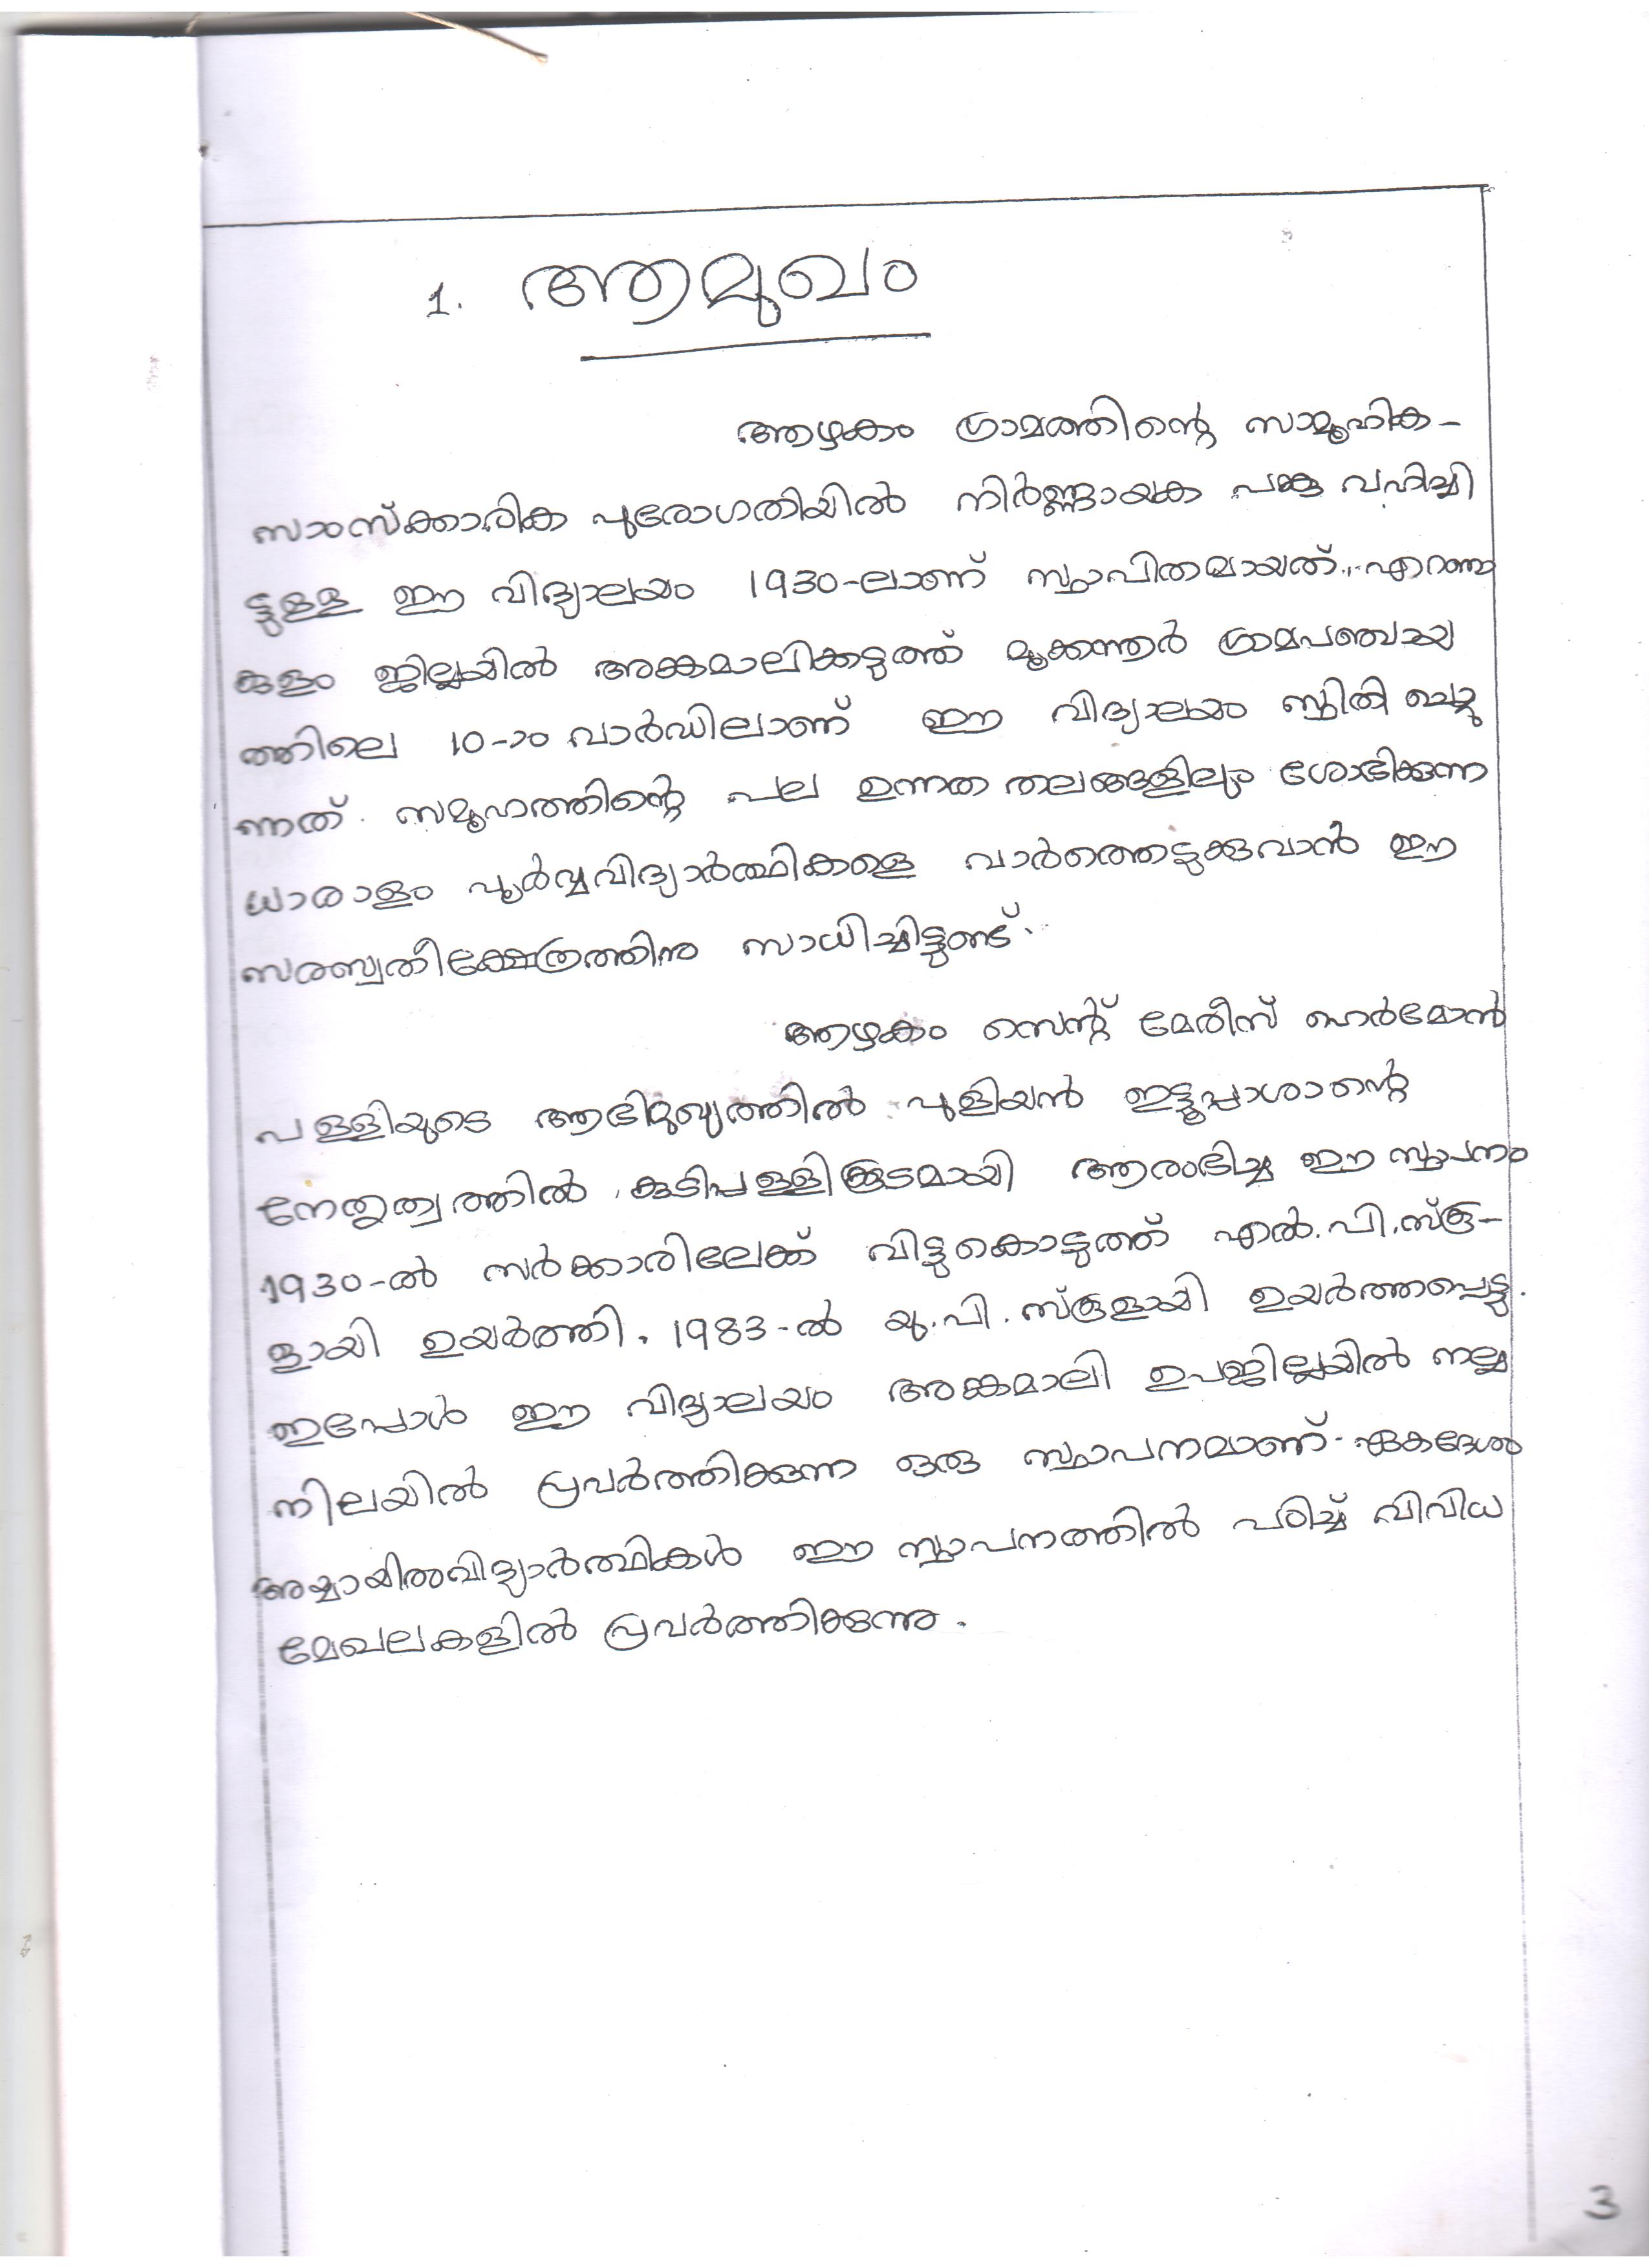 1. ആമുഖം
ആഴകം ഗ്രാമത്തിന്റെ സാമൂഹിക-
സാംസ്ക്കാരിക പുരോഗതിയിൽ നിർണ്ണായക പങ്കു വഹിച്ചി
ട്ടുള്ള ഈ വിദ്യാലയം 1930-ലാണ് സ്ഥാപിതമായത്. എറണാ
കുളം ജില്ലയിൽ അങ്കമാലിക്കടുത്ത് മൂക്കന്നൂർ ഗ്രാമപഞ്ചായ
ത്തിലെ 10-ാം വാർഡിലാണ് ഈ വിദ്യാലയം സ്ഥിതി ചെയ്യു
ന്നത്. സമൂഹത്തിന്റെ പല ഉന്നത തലങ്ങളിലും ശോഭിക്കുന്ന
ധാരാളം പൂർവ്വവിദ്യാർത്ഥികളെ വാർത്തെടുക്കുവാൻ ഈ
സരസ്വതീക്ഷേത്രത്തിനു സാധിച്ചിട്ടുണ്ട്.
ആഴകം സെന്റ് മേരീസ് ഹെർമോൻ
പള്ളിയുടെ ആഭിമുഖ്യത്തിൽ പുളിയൻ ഇട്ടൂപ്പാശാന്റെ
നേതൃത്വത്തിൽ കുടിപ്പള്ളിക്കൂടമായി ആരംഭിച്ച ഈ സ്ഥാപനം
1930-ൽ സർക്കാരിലേക്ക് വിട്ടുകൊടുത്ത് എൽ.പി.സ്കൂ-
ളായി ഉയർത്തി. 1983-ൽ യു.പി.സ്കൂളായി ഉയർത്തപ്പെട്ടു.
ഇപ്പോൾ ഈ വിദ്യാലയം അങ്കമാലി ഉപജില്ലയിൽ നല്ല
നിലയിൽ പ്രവർത്തിക്കുന്ന ഒരു സ്ഥാപനമാണ്. ഏകദേശം
അയ്യായിരംവിദ്യാർത്ഥികൾ ഈ സ്ഥാപനത്തിൽ പഠിച്ച് വിവിധ
മേഖലകളിൽ പ്രവർത്തിക്കുന്നു.
3